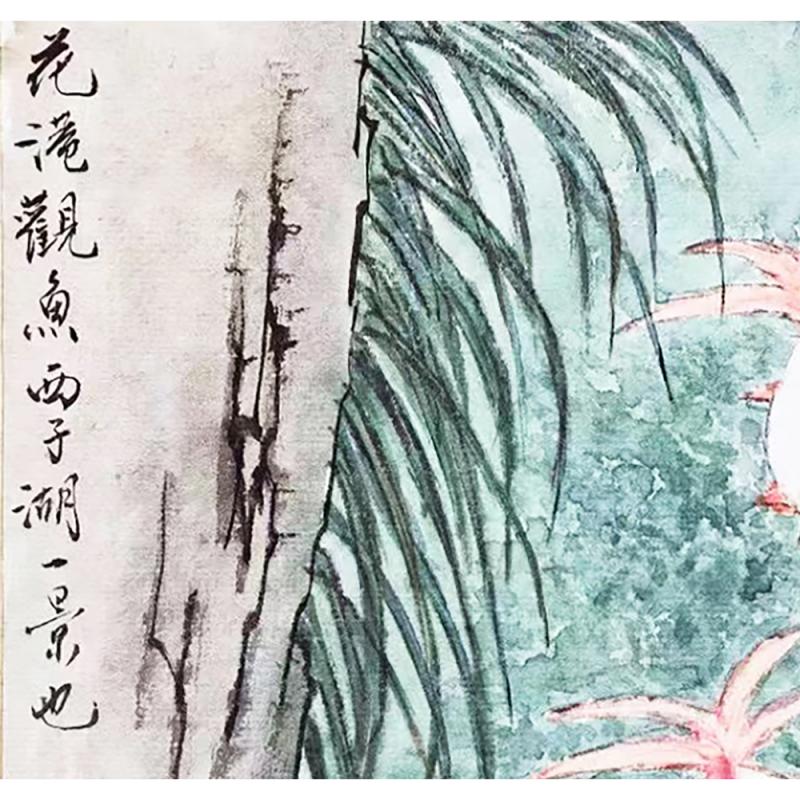 花港觀魚西子湖一景也